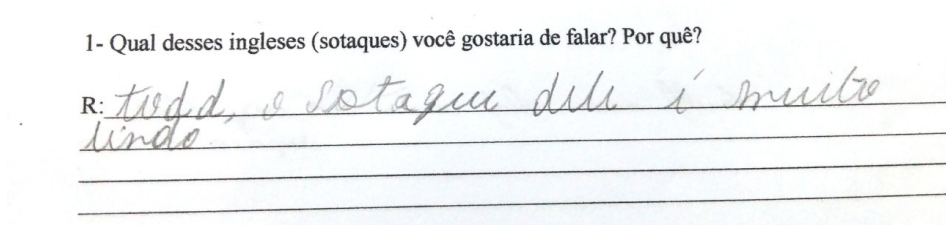 1- Qual desses ingleses (sotaques) você gostaria de falar? Por quê?
R: todd, o sotaque dele é muito
lindo.